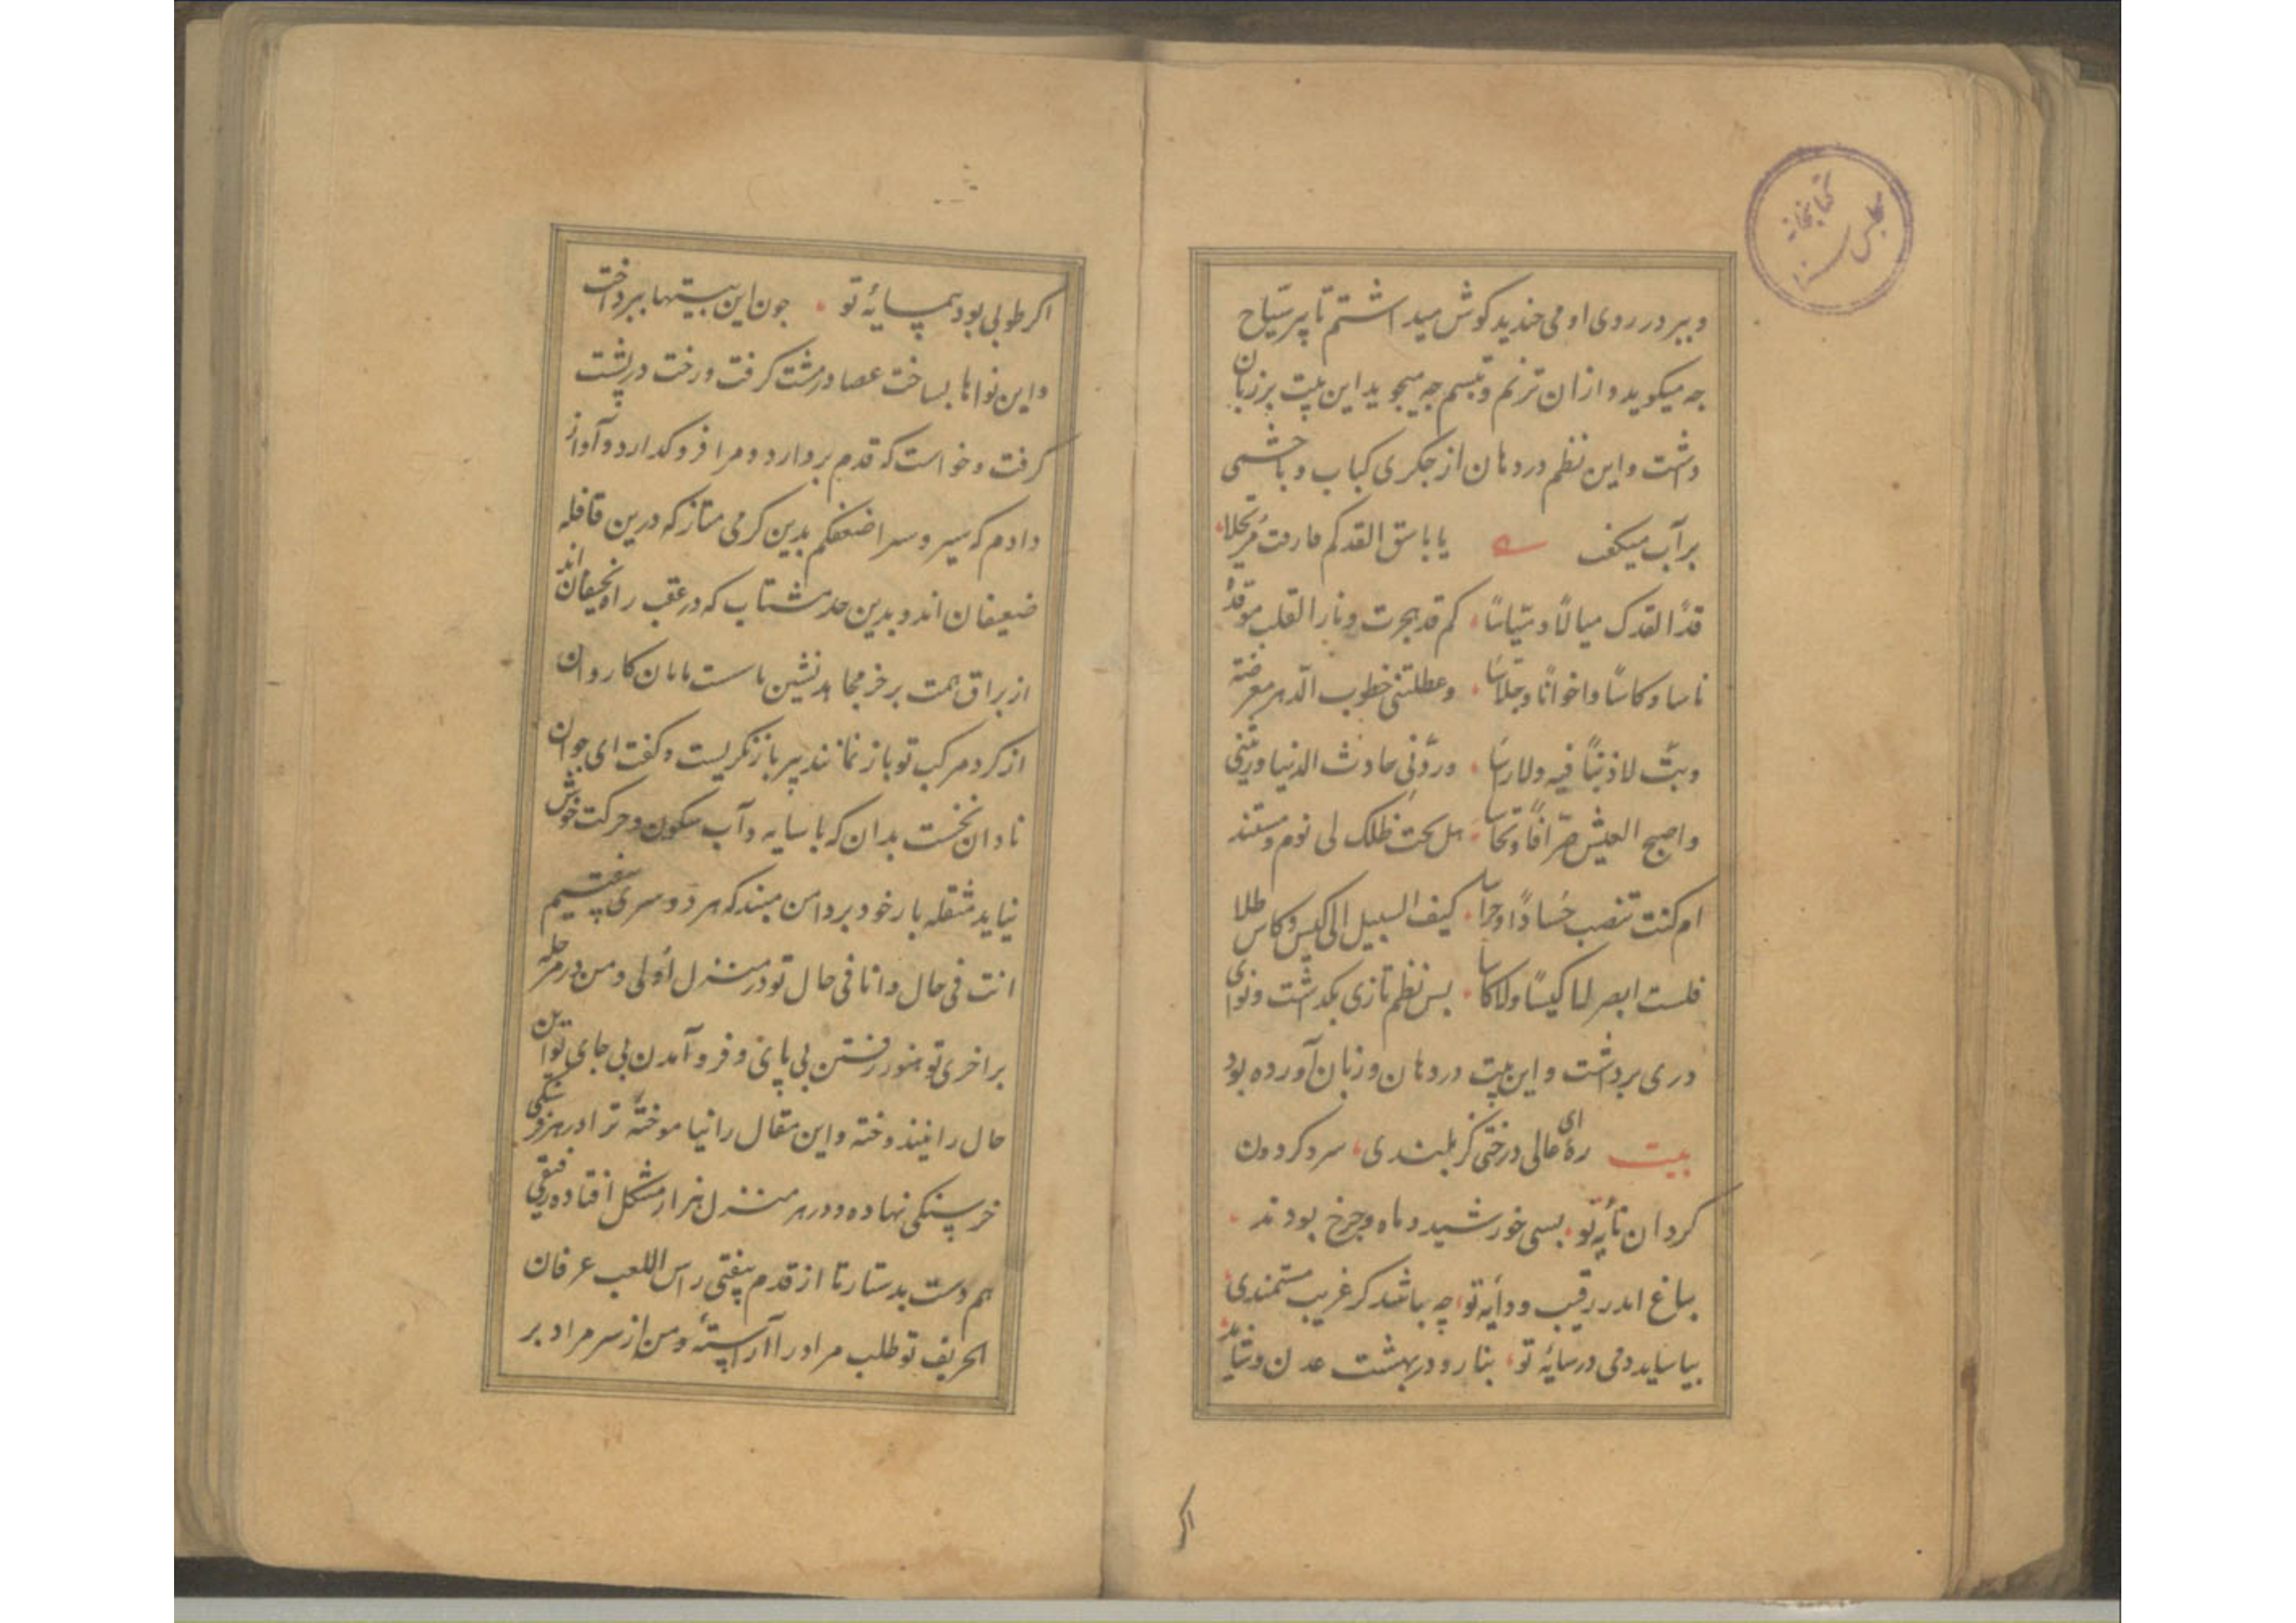 کتابخانه مجلس
و پیر در روی او می خندید کوش میداشتم تا پیر سیاح
جه میکوید و از ان ترنم و تبسم جه میجوید این بیت بر زبان
داشت و این نظم در دهان از جکری کباب و با جشمی
بر آب میکفت یا باسق القد کم فارقت مرتحلا
قدا لقدک میالا و میاسا کم قد هجرت و نار القلب موقدة
ناسا و کاسا و اخوانا و جلاسا و عطلتنی خطوب الدهر معرضة
وبت لا ذنبا فیه ولا راسا و ردنی حادث الدنیا و رنقنی
واصبح العیش هل تحت ظلک لی نوم و مستند
ام کنت تنصب حسادا و حراسا کیف السبیل الی کیس و کاس طلا
فلست ابصر لا کیسا ولا کاسا بس نظم تازی بکذشت و نوای
دری برداشت و این بیت در دهان و زبان آورده بود
بیت زهی عالی درختی کز بلندی سر و کردون
کردان تأیه تو بسی خورشید و ماه و جرخ بودند
بباغ اندر رقیب و دایه تو چه باشد کر غریب مستمندی
بیاساید دمی در سایه تو بنا رو در بهشت عدن و نتابد
اکر
اکر طوبی بود همسایه تو جون این بیتها ببرداخت
و این نواها بساخت عصا در مشت کرفت و رخت در پشت
کرفت و خواست که قدم بردارد و مرا فروکدارد و آواز
دادم که سیر و سیر اضعفکم بدین کرمی متاز که درین قافله
ضعیفان اند و بدین حد مشتاب که در عقب راه نحیفان اند
از براق همت بر خر مجاهد نشین تا سست پایان کاروان
از کرد مرکب تو باز نمانند پیر باز نکریست و کفت ای جوان
نادان نخست بدان که با سایه و آب سکون و حرکت خوش
نیاید مثقله بار خود بر دامن مبند که هر دو سری
انت فی حال و انا فی حال تو در منزل اولی و من در مرحله
براخری تو هنوز رفتن بی پای و فرو آمدن بی جای نوا این
حال را نیندوخته و این مقال را نیاموخته ترا در هر فرسنکی
خرسنکی نهاده و در هر منزل هزار مشکل افتاده رفیقی
هم دست بدست آر تا از قدم بیفتی راس اللعب عرفان
الحریف تو طلب مراد را آراسته و من از سر مراد بر